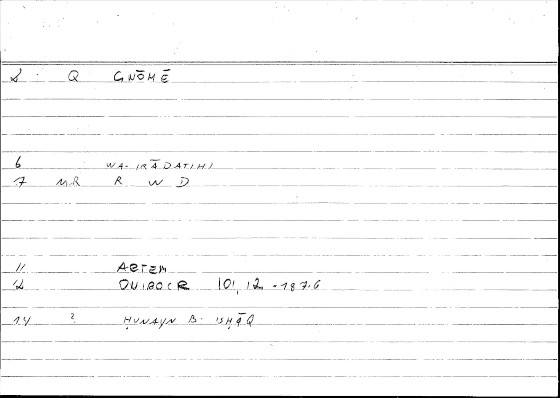 2 Q GNŌMĒ
6 WA-IRĀDATIHI
7 MR R W D
11 ARTEM
12 ONIROCR 101,12 - 187.6
14 ? ḤUNAYN B. ISḤĀQ